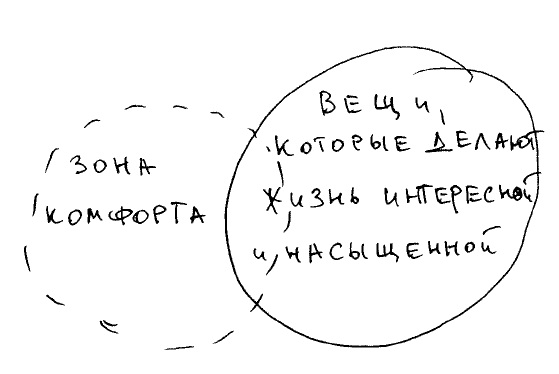 ЗОНА
КОМФОРТА
ВЕЩИ,
КОТОРЫЕ ДЕЛАЮТ
ЖИЗНЬ ИНТЕРЕСНОЙ
И НАСЫЩЕННОЙ